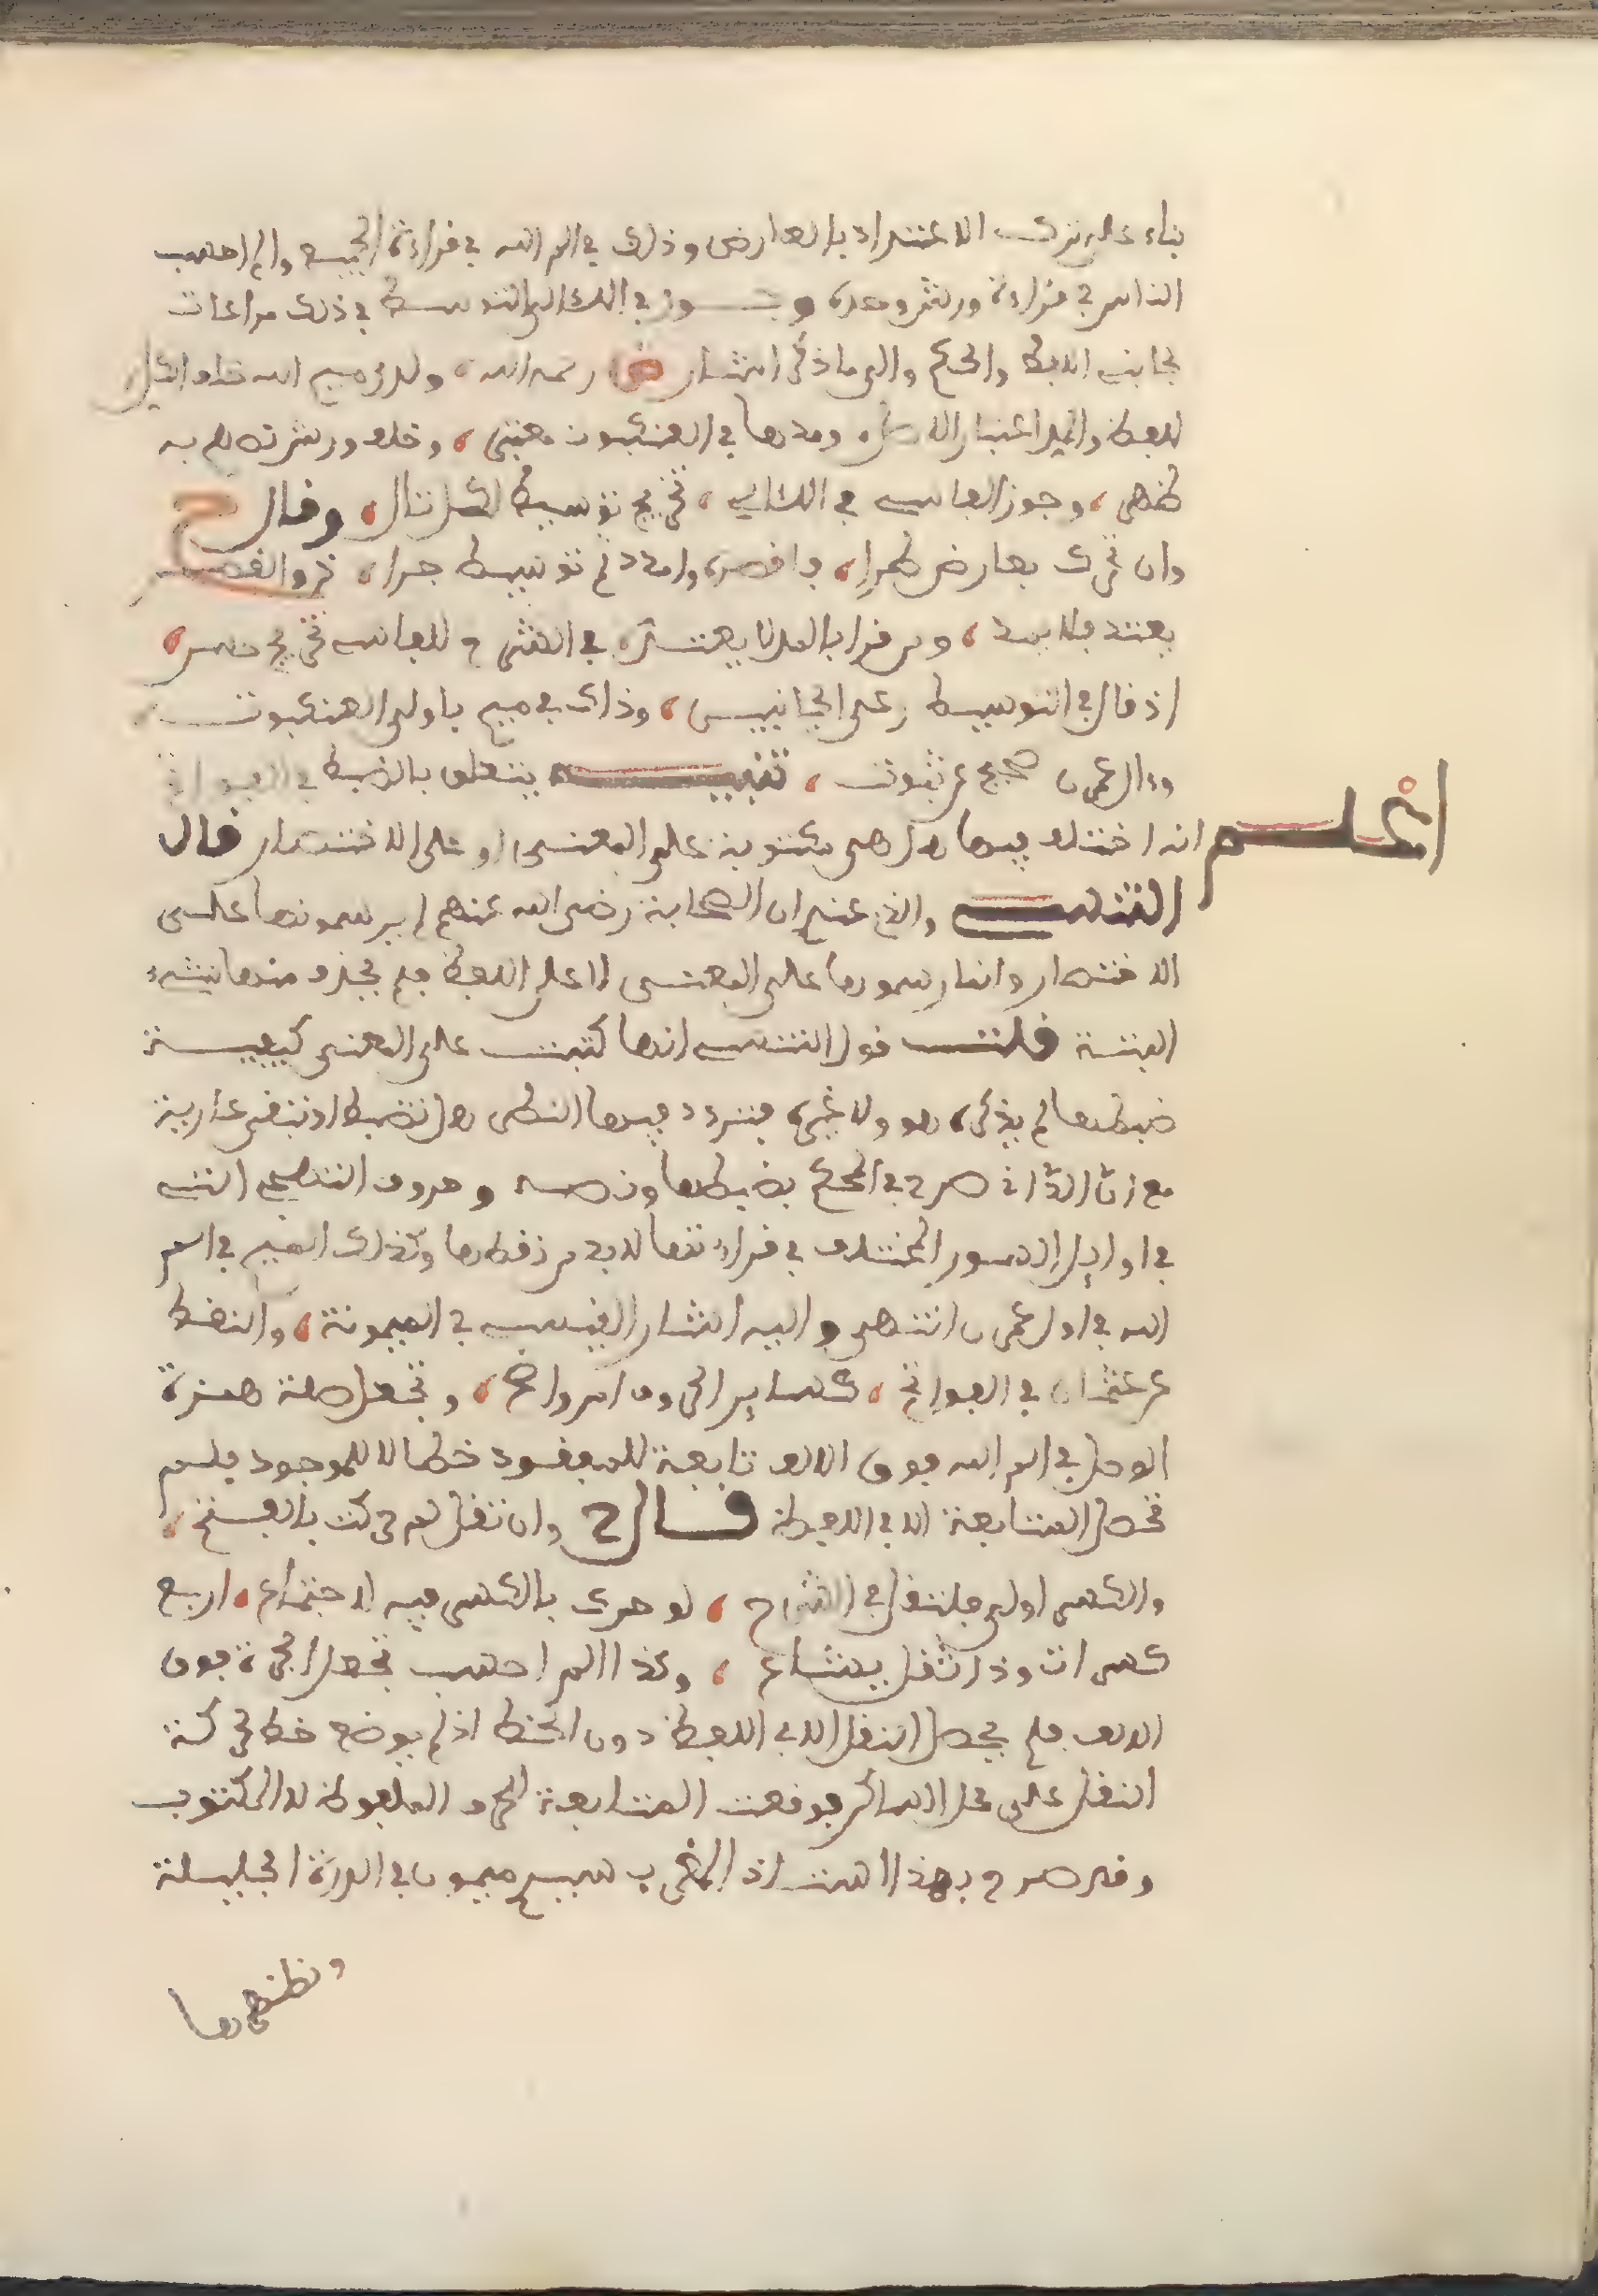 بناء على ترك الاعتداد بالعارض وذلك في الم الله في قراءة الجميع والم احسب
الناس في قراءة ورش وحده وجوز في اللئالي التوسط في ذلك مراعات
لجانب اللفظ والحكم والى ما ذكر اشار رحمه الله، ولدى ميم الله خلف الكل
للفظ والميل اعتبار الاصل ومدها في العنكبوت معتبى، وخلف ورش
وجوز الفاسي في اللئالي، تخريج توسيط لكل تال، وقال ح
وان تحرك بعارض طرا، فاقصر وامدد ثم توسيط جرا، ذو القصر
يعتد فلا يمد، ومن قرا بالمد لا يعتد في الشرح للفاسي تخريج حسن،
اذ قال في التوسيط رعى الجانبين، وذاك في ميم باولى العنكبوت
وءال عمران صحيح عن ثبوت، تنبيه يتعلق بالضبط في الفواتح
اعلم انه اختلف فيها هل هي مكتوبة على المعنى او على الاختصار قال
التنسي والذي عندي ان الصحابة رضي الله عنهم لم يرسموها على
الاختصار وانما رسموها على المعنى لا على اللفظ فلم يحذف منها شيء
البتة قلت قول التنسي انها كتبت على المعنى كيفية
ضبطها لم يذكره هو ولا غيره فتردد فيها النظر هل تضبط او تبقى عارية
مع ان الداني صرح في المحكم بضبطها ونصه وحروف التهجي التي
في اوايل السور المختلف في قراءتها لا بد من نقطها وكذلك الميم في اسم
الله في اول عمران انتهى واليه اشار القيسي في الميمونة، والنقط
عن عثمان في الفواتح، كساير الحروف امر واضح، وتجعل صلة همزة
الوصل في الم الله فوق الالف تابعة للمفقود خطا لا للموجود فلم
تحصل المتابعة الا في اللفظ قال ح وان تقل لم حركت بالفتح،
والكسر اولى فلتقل في الشرح، لو حرك بالكسر فيه لاجتماع، اربع
كسرات وذا ثقل يشاع، وكذا الم احسب تجعل الجرة فوق
الالف فلم يحصل النقل الا في اللفظ دون الخط اذ لم يوضع خط حركة
النقل على محل الساكن فوقعت المتابعة للحرف الملفوظ لا المكتوب
وقد صرح بهذا استاذ المغرب سيدي ميمون في الدرة الجليلة
ونظيرها